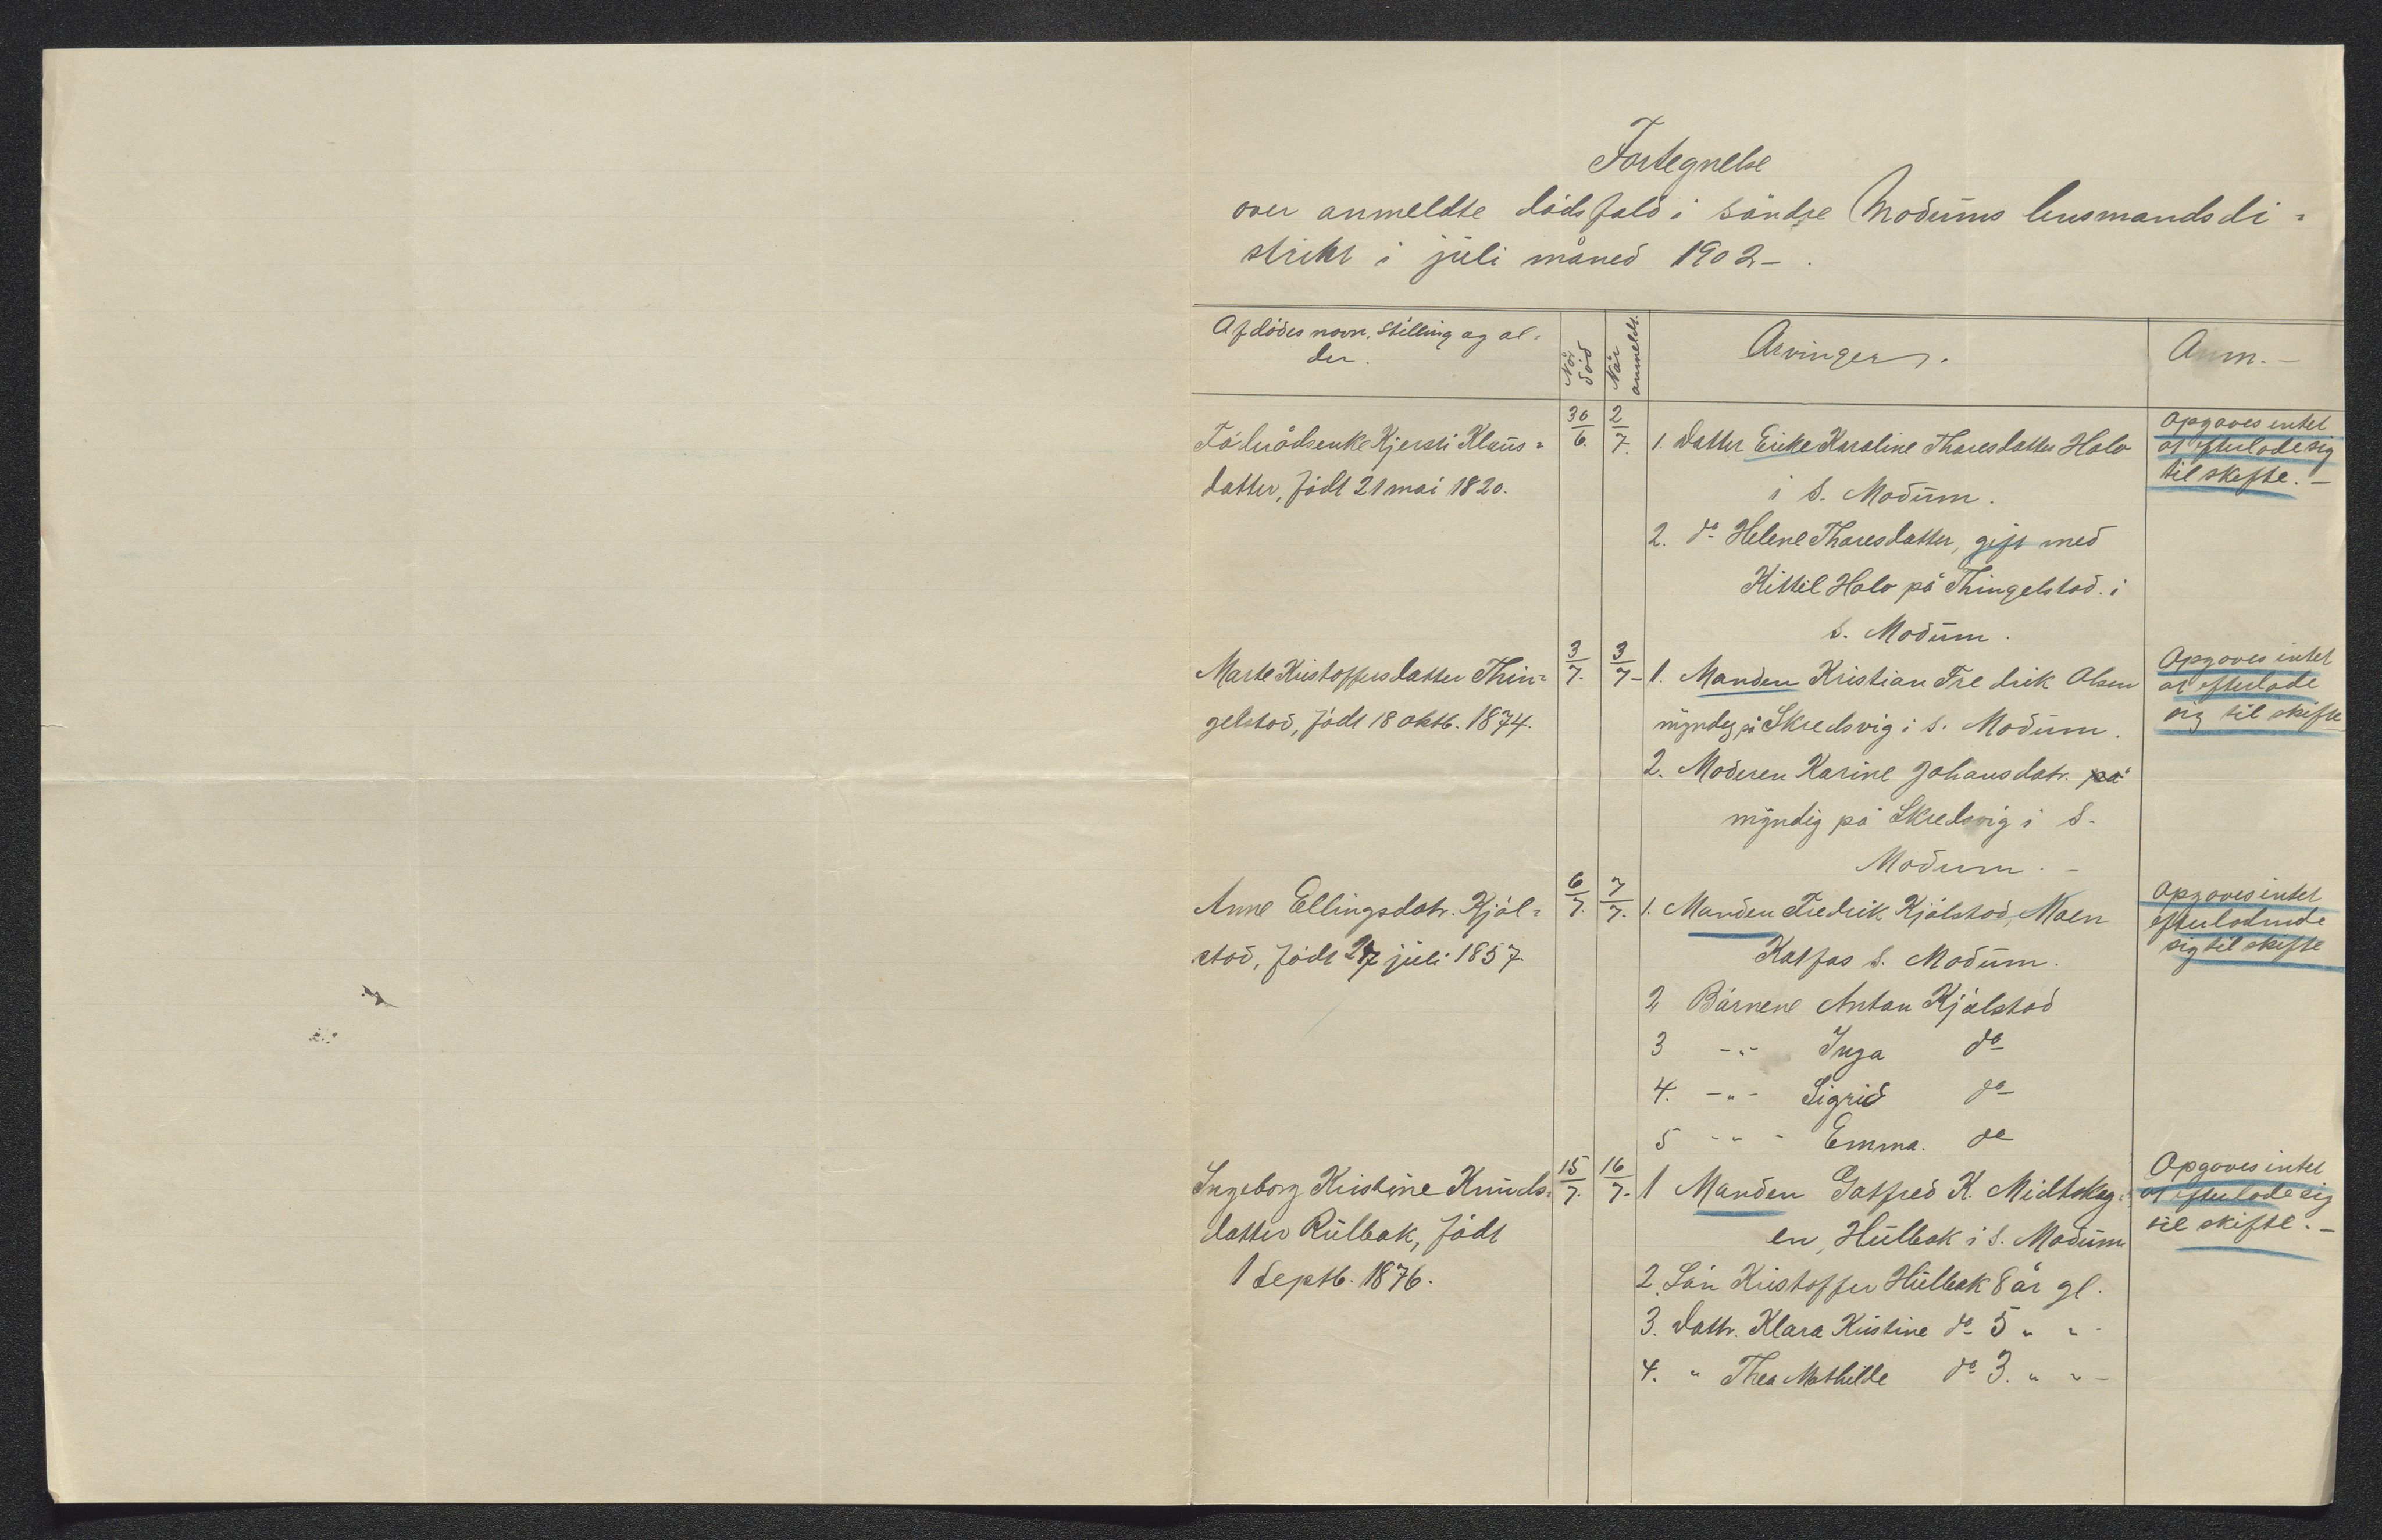 Fortegnelse
over anmeldte dødsfald i søndre Modums lensmandsdi-
strikt i juli måned 1902-.
Afdødes navn, stilling og al-
der.
Når
død
Når
anmeldt.
Arvinger.
Anm.-
Fåderådsenke Kjersti Klaus-
datter, født 21 mai 1820.
30/6.
2/7.
1. Datter Enke Karoline Thoresdatter Holo
i S. Modum.
2. do Helene Thoresdatter, gift med
Kittil Holo på Thingelstad. i
S. Modum.
Opgaves intet
at efterlade sig
til skifte.-
Marte Kristoffersdatter Thin-
gelstad, født 18 oktb. 1874.
3/7.
3/7-
1. Manden Kristian Fredrik Olsen
myndig på Skredsvig i S. Modum.
2. Moderen Karine Johansdatr. på
myndig på Skredsvig i S.
Modum.-
Opgaves intet
at efterlade
sig til skifte
Anne Ellingsdatr. Kjøl-
stad, født 27 juli 1857.
6/7.
7/7.
1. Manden Fredrik Kjølstad, Moen
Katfos S. Modum.
2 Børnene Anton Kjølstad
3 -"- Inga do
4. -"- Sigrid do
5 -"- Emma. do
Opgaves intet
efterladende
sig til skifte
Ingeborg Kristine Knuds-
datter Rulbak, født
1 Septb. 1876.
15/7.
16/7-
1 Manden Gotfred K. Midtskog-
en, Hulbak i S. Modum
2. Søn Kristoffer Hulbak 8 år gl.
3. Dattr. Klara Kristine do 5 " "-
4. " Thea Mathilde do 3. " "-
Opgaves intet
at efterlade sig
til skifte.-